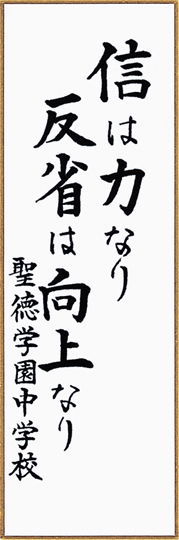 信は力なり
反省は向上なり
聖徳学園中学校